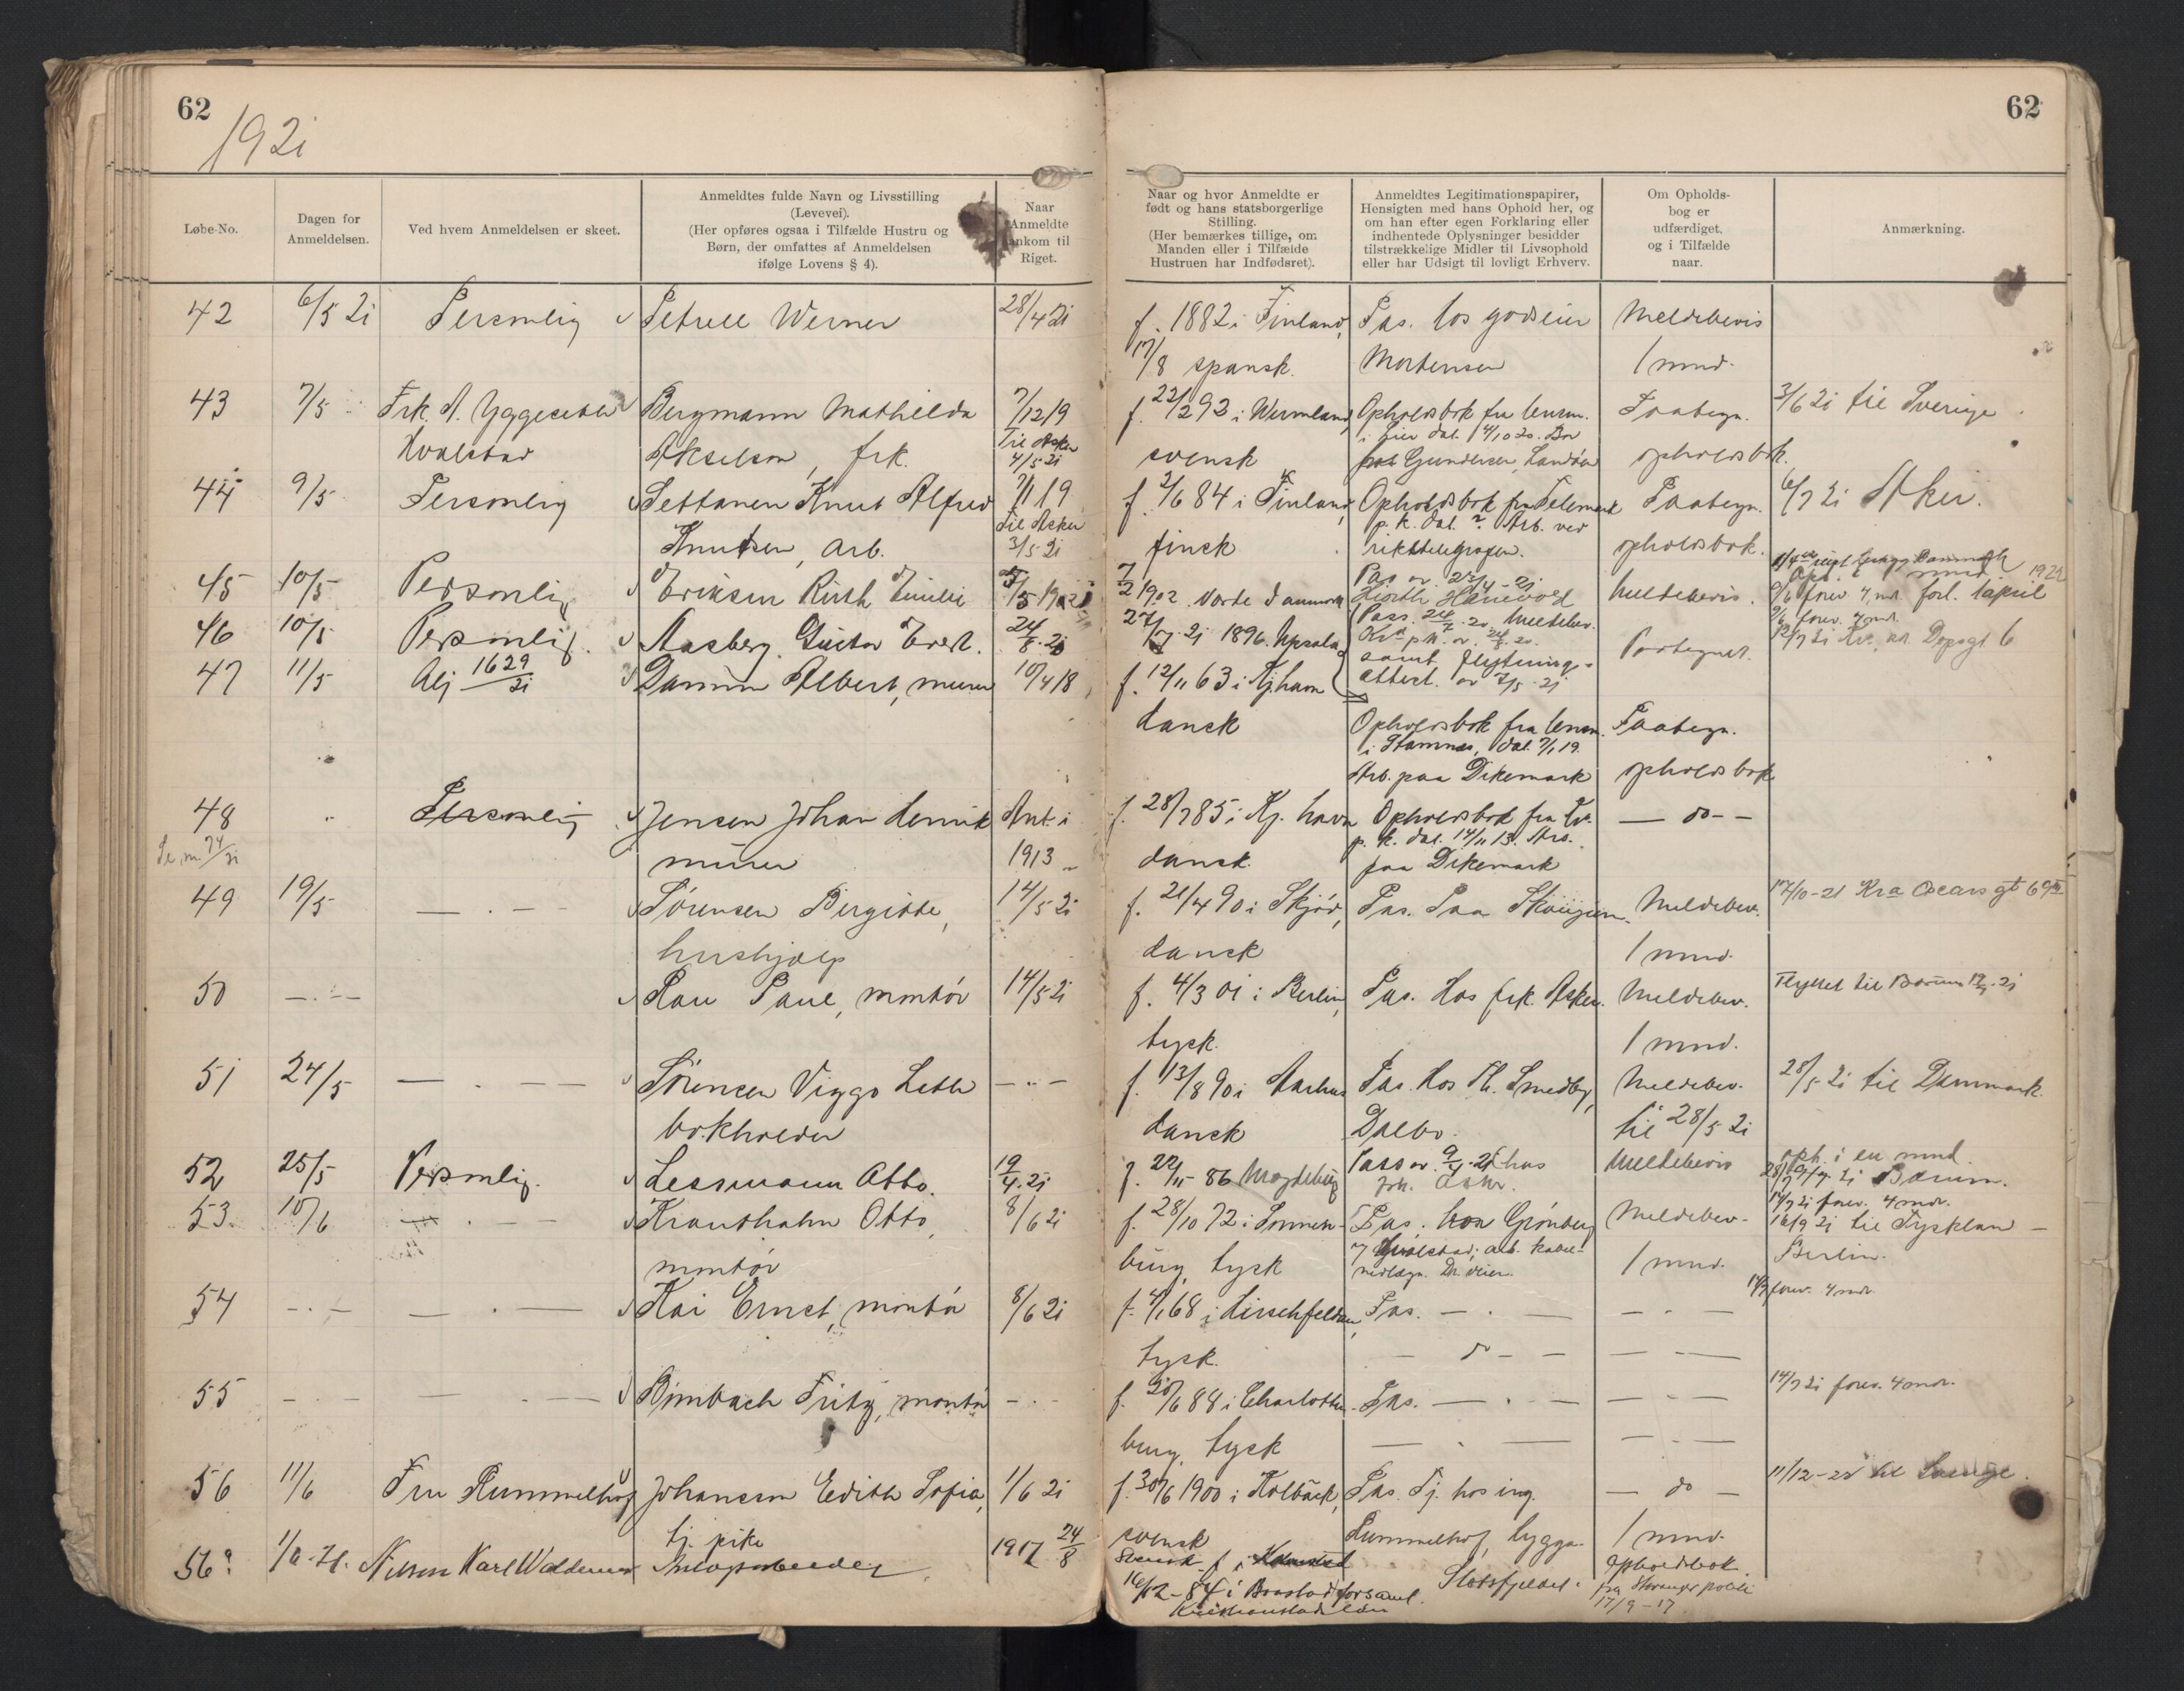 62
62
1921
Løbe-No.
Dagen for
Anmeldelsen.
Ved hvem Anmeldelsen er skeet.
Anmeldtes fulde Navn og Livsstilling
(Levevei).
(Her opføres ogsaa i Tilfælde Hustru og
Børn, der omfattes af Anmeldelsen
ifølge Lovens § 4).
Naar
Anmeldte
ankom til
Riget.
Naar og hvor Anmeldte er
født og hans statsborgerlige
Stilling.
(Her bemærkes tillige, om
Manden eller i Tilfælde
Hustruen har Indfødsret).
Anmeldtes Legitimationspapirer,
Hensigten med hans Ophold her, og
om han efter egen Forklaring eller
indhentede Oplysninger besidder
tilstrækkelige Midler til Livsophold
eller har Udsigt til lovligt Erhverv.
Om Opholds-
bog er
udfærdiget,
og i Tilfælde
naar.
Anmærkning.
42 6/5 21 Personlig Petrell Werner 28/4 21 f. 1882 i Finland, Pas. hos godseier Meldebevis
17/8 spansk. Mortensen 1 mnd.
43 7/5 Frk. A. Yggeseth Bergmann Mathilda 7/12 19 f. 22/2 93 i Wermland, Opholdsbok fra lensm. Paategn. 3/6 21 til Sverige
Hvalstad Akselson, frk. Til Asker 4/5 21 svensk i Lier dat. 14/10 20. Bor Gundersen, Landøen opholdsbok.
44 9/5 Personlig Settanen Knut Alfred 7/1 19 f. 2/6 84 i Finland, Opholdsbok fra Telemark Paategn. 6/7 21 Aker.
Knutsen, arb. Til Asker 3/5 21 finsk p. k. dat. ? Arb. ved rikstelegrafen. opholdsbok.
45 10/5 Personlig Eriksen Ruth Emilie 5/5 1921 7/2 1902 Varde Danmark Pas av 23/4 - 21 Meldebevis. 9/6 forev 4 md. forl. 1 april 1922
46 10/5 Personlig. Aasberg Gustav Evert. 24/8 20 1896 Upsala Pass. 24/7 20. Meldebev. Kra p.k. av 24/8 20. Paategnet. 9/6 forev. 4 mdr.
samt flytnings-
47 11/5 Alj 1629/21 Damm Albert, murer 10/4 18 f. 12/11 63 i Kj.havn attest. av 7/5 - 21
dansk Opholdsbok fra lensm. Paategn.
i Stamnes, dat. 7/1 19.
Arb. paa Dikemark opholdsbok
48 Personlig Jensen Johan Henrik Ant. i f. 28/7 85 i Kj.havn Opholdsbok fra Kr. — do —
Se nr. 74/21 murer 1913 dansk. p. k. dat. 14/11 13. Arb.
paa Dikemark
49 19/5 — . — Sørensen Birgitte, 14/5 21 f. 21/4 90 i Skjød, Pas. Paa Skaugum. Meldebev. 17/10-21 Kra Oscars gt 69
hushjælp dansk 1 mnd.
50 — . — Rau Paul, montør 14/5 21 f. 4/3 01 i Berlin, Pas. Hos frk. Asker. Meldebev. Flyttet til Bærum
tysk. 1 mnd.
51 24/5 — . — Sørensen Viggo Leth — . — f. 13/8 90 i Aarhus Pas. Hos Th. Smedby, Meldebev. 28/5 21 til Danmark
bokholder dansk Dalbo. til 28/5 21
52 25/5 Personlig. Lessmann Otto. 19/4 21 f. 22/11 - 86 Magdeburg Pass av 9/4 - 21 hos Meldebevis oph. i en mnd.
Joh. Asker. Bærum.
53. 10/6 — . — Krauthahn Otto, 8/6 21 f. 28/10 72 i Sonnen- Pas. hos Grønberg Meldebev. 14/7 21 forev. 4 mdr.
montør burg, tysk Hvalstad; arb. kabel- 1 mnd. 16/9 21 til Tyskland —
nedlægn. Dr. veien. Berlin.
54 — . — — . — Kai Ernst, montør 8/6 21 f. 4/1 68 i Hirschfelden, Pas. — . — — . — 14/7 forev. 4 mdr.
tysk. — do —
55 — . — — . — Birnbach Fritz, montør — . — f. 20/6 88 i Charlotten- Pas. — . — — . — 14/7 21 forev. 4 mdr.
burg, tysk — . —
56 11/6 Fru Rummelhof Johansson Edith Sofia, 1/6 21 f. 30/6 1900 i Kolbäck, Pas. Tj. hos ing. — do —
tj. pike svensk Rummelhof, bygga. 1 mnd.
56a 1/6-21. Nilsson Karl Waldemar Anlægsarbeider. 1917 24/8 Svensk f. i Slotsfjeldet. Opholdbok.
16/12-84 i Brostad forsaml. fra Stavanger politi
Kristianstads län 17/9-17